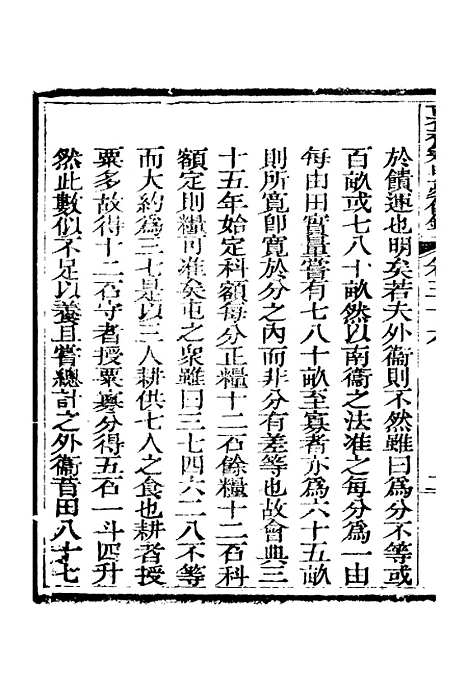 於饋運也明矣若夫外衞則不然雖曰爲分不等或
百畝或七八十畝然以南衞之法准之每分爲一由
每由田實量嘗有七八十畝至寡者亦爲六十五畝
則所寬卽寬於分之內而非分有差等也故會典三
十五年始定科額每分正糧十二石餘糧十二石科
額定則糧可准矣屯之衆雖曰三七四六二八不等
而大約爲三七是以三人耕供七人之食也耕者授
粟多故得十二石守者授粟寡分得五石一斗四升
然此數似不足以養且嘗總計之外衞首田八十七